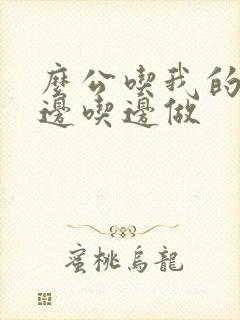 麼公喫我的
邊喫邊做
蜜桃烏龍